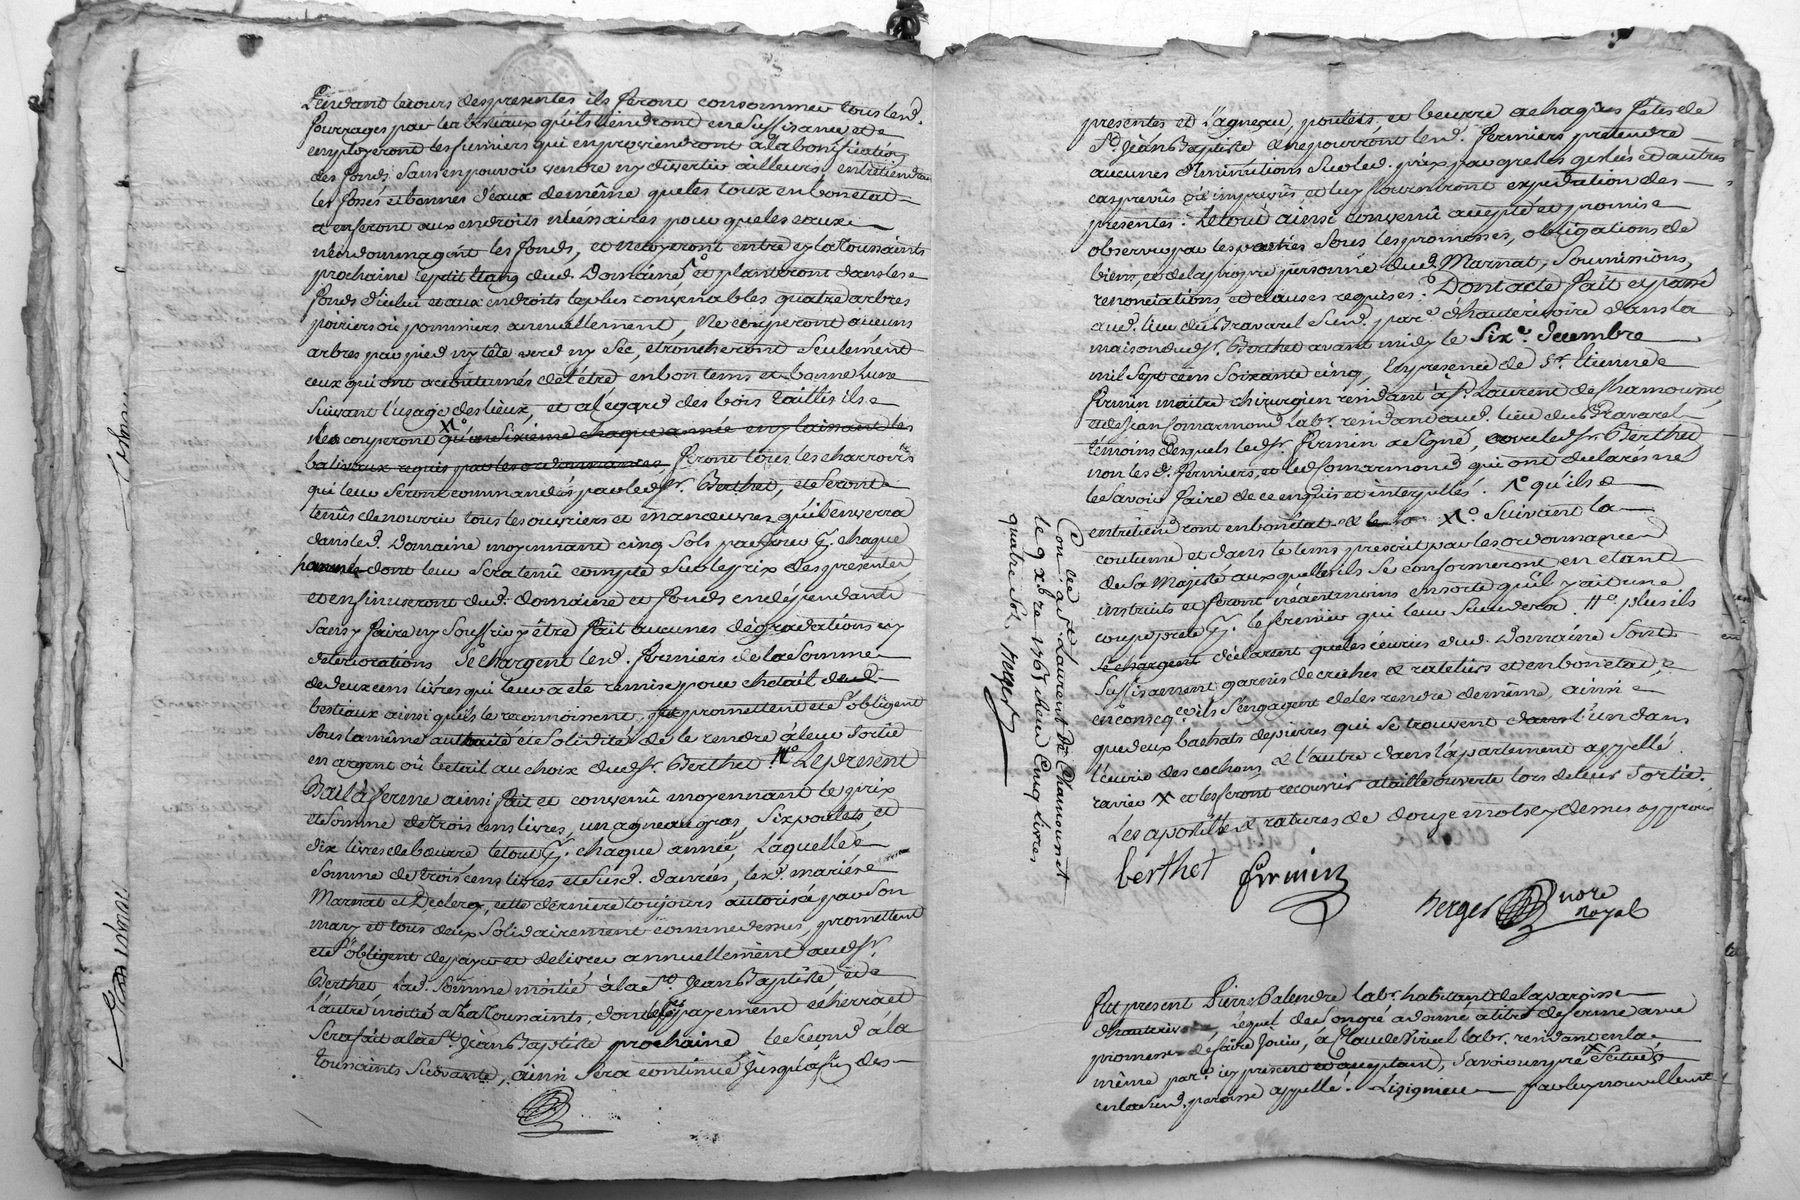 Pendant le cours des presentes ils feront consommer tous lesd.
fourrages par les bestiaux qu'ils tiendront en suffisance et
employeront les fumiers qui en proviendront à la bonification
des fonds. Sans en pouvoir vendre ny divertir ailleurs, entretiendront
les fossés et bonnes d'eaux de même que les toux en bon etat
et en feront aux endroits nécessaires pour que les eaux
n'endommagent les fonds, et netoyeront entre cy la toussaints
prochaine le petit etang dud. Domaine 1° et planteront dans les
fonds d'icelui et aux endroits les plus convenables quatre arbres
poiriers où pommiers annuellement, ne couperont aucuns
arbres par pied ny tête verd ny sec, etroncheront seulement
ceux qui ont accoutumés de l'être en bon tems et bonne lune
suivant l'usage des lieux, et a l'egard des bois taillis ils
les couperont X° qu'un sixieme chaque année en y laissant les
baliveaux requis par les ordonnances feront tous les charrois
qui leur seront commandés par led. Sr. Berthet, et seront
tenus de nourrir tous les ouvriers et manœuvres qu'il enverra
dans led. Domaine moyennant cinq sols par jour p. chaque
hommes dont leur sera tenû compte sur le prix des presentes
et en finiront dud. domaine et fonds en dépendants
sans y faire ny souffrir y être fait aucunes dégradations ny
deteriorations Se chargent lesd. fermiers de la somme
de deux cens livres qui leur a été remise pour chetail
bestiaux ainsi qu'ils le reconnoissent, promettent et s'obligent
sous la même authorité et solidité de le rendre à leur sortie
en argent où betail au choix dud. Sr. Berthet II° Le present
Bail à ferme ainsi fait et convenû moyennant le prix
et somme de trois cens livres, un agneau gras, six poulets, et
dix livres de beurre le tout p. chaque année, Laquelle
somme de trois cens livres et susd. danrées, lesd. mariés
Marnat et Declerq, cette derniere toujours autorisée par son
mary et tous deux solidairement comme dessus, promettent
et s'obligent de payer et delivrer annuellement aud. Sr.
Berthet lad. somme moitié à la St. Jean Baptiste, et
l'autre moitié a la toussaints, dont le payement écherra et
sera fait a la St. Jean Baptiste prochaine le second à la
toussaints suivante, ainsi sera continué jusqu'a fin des
presentes et l'agneau, poulets et beurre a chaques fêtes de
St. Jean Baptiste et ne pourront lesd. fermiers pretendre
aucunes diminutions sur led. prix par greles gelées et autres
cas prevûs où imprevûs, et luy fourniront expedition des
presentes. Le tout ainsi convenû accepté et promis
observer par les parties sous les promesses, obligations de
biens, et de la propre personne dud. Marnat, soumissions,
renonciations et clauses requises. Dont acte fait et passé
aud. lieu du Bravarel susd. par. d'hauterivoire dans la
maison dud. Sr. Berthet avant midy le six. decembre
mil sept cens soixante cinq, en presence de Sr. Etienne
firmin maitre chirurgien residant à St. Laurent de Chamousset,
et de Jean fomarmond lab. residant aud. lieu du Bravarel
témoins desquels led. Sr. firmin a signé, avec led. Sr. Berthet
non les d. fermiers, et led. fomarmond qui ont declarés ne
le savoir faire de ce enquis et interpellés. 1° qu'ils
entretiendront en bon état X° suivant la
coutume et dans le tems prescrit par les ordonnances
de Sa Majesté auxquelles ils se conformeront en etant
instruits et feront néantmoins en sorte qu'il y ait une
coupe prete p. le fermier qui leur succedera. II° plus ils
se chargent déclarent que les écuries dud. Domaine sont
suffisament garnies de creches et rateliers et en bon etat,
en conseq. ils s'engagent de les rendre de même, ainsi
que deux bachats de pierres qui se trouvent dans l'un dans
l'écurie des cochons et l'autre dans l'apartement appellé
ravier X et les feront recouvrir a taille ouverte lors de leur sortie.
Les apostilles et ratures de douze mots cy dessus approuvé
berthet firmin
Berger nore
royal
Con. ce a St. Laurent De Chamousset
le 9 xbre 1765 Reçu Cinq livres
quatre sols Berger
fut present Pierre Palendre lab. habitant de la paroisse
d'hauterivoire, lequel de son gré a donné a titre de ferme avec
promesse de faire jouir, à Claude Viricel lab. residant en la
même par. icy present et acceptant, savoir un pré situé
en la susd. paroisse appellé. Lizignieu par luy nouvellement